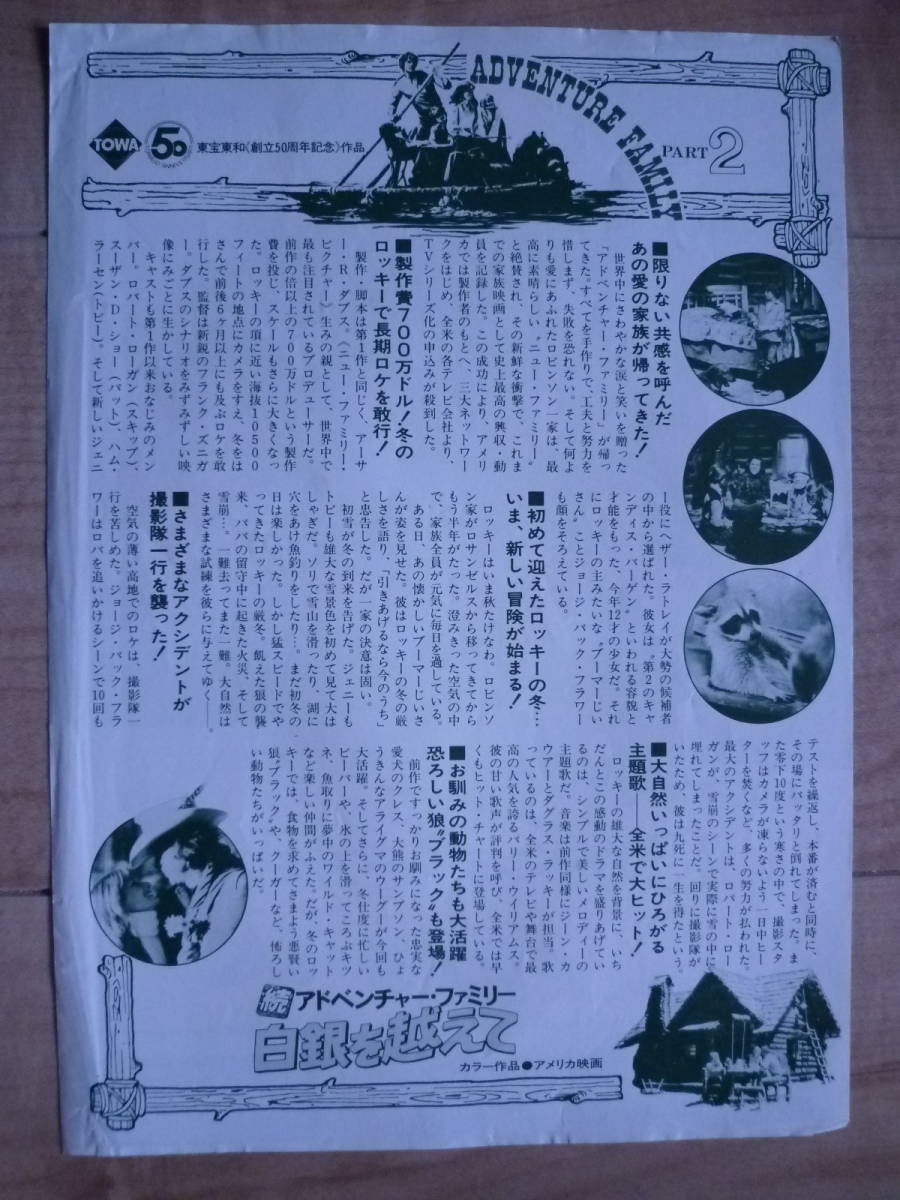 ADVENTURE FAMILY
PART 2
TOWA
50
東宝東和《創立50周年記念》作品
■限りない共感を呼んだ
あの愛の家族が帰ってきた！
世界中にさわやかな涙と笑いを贈った
「アドベンチャー・ファミリー」が帰っ
てきた。すべてを手作りで、工夫と努力を
惜しまず、失敗を恐れない。そして何よ
りも愛にあふれたロビンソン一家は、最
高に素晴らしい〝ニュー・ファミリー〟
と絶賛され、その新鮮な衝撃で、これま
での家族映画として史上最高の興収・動
員を記録した。この成功により、アメリ
カでは製作者のもとへ、三大ネットワー
クをはじめ、全米の各テレビ会社より、
TVシリーズ化の申込みが殺到した。
■製作費700万ドル！冬の
ロッキーで長期ロケを敢行！
製作・脚本は第1作と同じく、アーサ
ー・R・ダブス。《ニュー・ファミリー・
ピクチャー》生みの親として、世界中で
最も注目されているプロデューサーだ。
前作の倍以上の700万ドルという製作
費を投じ、スケールもさらに大きくなっ
た。ロッキーの頂に近い海抜10500
フィートの地点にカメラをすえ、冬をは
さんで前後6ヶ月以上にも及ぶロケを敢
行した。監督は新鋭のフランク・ズニガ
ー。ダブスのシナリオをみずみずしい映
像にみごとに生かしている。
キャストも第1作以来おなじみのメン
バー。ロバート・ローガン（スキップ）、
スーザン・D・ショー（パット）、ハム・
ラーセン（トビー）。そして新しいジェニ
ー役にヘザー・ラトレイが大勢の候補者
の中から選ばれた。彼女は〝第2のキャ
ンディス・バーゲン〟といわれる容貌と
才能をもった、今年12才の少女だ。それ
にロッキーの主みたいな〝ブーマーじい
さん〟ことジョージ・バック・フラワー
も顔をそろえている。
■初めて迎えたロッキーの冬…
いま、新しい冒険が始まる！
ロッキーはいま秋たけなわ。ロビンソ
ン家がロサンゼルスから移ってきてから
もう半年がたった。澄みきった空気の中
で、家族全員が元気に毎日を過している。
ある日、あの懐かしいブーマーじいさ
んが姿を見せた。彼はロッキーの冬の厳
しさを語り、「引きあげるなら今のうち」
と忠告した。だが一家の決意は固い。
初雪が冬の到来を告げた。ジェニーも
トビーも雄大な雪景色を初めて見て大は
しゃぎだ。ソリで雪山を滑ったり、湖に
穴をあけ魚釣りをしたり。まだ初冬の
日は楽しかった。しかし猛スピードでや
ってきたロッキーの厳冬。飢えた狼の襲
来、パパの留守中に起きた火災、そして
雪崩…。一難去ってまた一難。大自然は
さまざまな試練を彼らに与えてゆく——。
■さまざまなアクシデントが
撮影隊一行を襲った！
空気の薄い高地でのロケは、撮影隊一
行を苦しめた。ジョージ・バック・フラ
ワーはロバを追いかけるシーンで10回も
テストを繰返し、本番が済むと同時に、
その場にバッタリと倒れてしまった。ま
た零下10度という寒さの中で、撮影スタ
ッフはカメラが凍らないよう一日中ヒー
ターを焚くなど、多くの努力が払われた。
最大のアクシデントは、ロバート・ロー
ガンが、雪崩のシーンで実際に雪の中に
埋れてしまったことだ。回りに撮影隊が
いたため、彼は九死に一生を得たという。
■大自然いっぱいにひろがる
主題歌——全米で大ヒット！
ロッキーの雄大な自然を背景に、いち
だんとこの感動のドラマを盛りあげてい
るのは、シンプルで美しいメロディーの
主題歌だ。音楽は前作同様にジーン・カ
ウアーとダグラス・ラッキーが担当。歌
っているのは、全米のテレビや舞台で最
高の人気を誇るバリー・ウイリアムス。
彼の甘い歌声が評判を呼び、全米では早
くもヒット・チャートに登場している。
■お馴みの動物たちも大活躍
恐ろしい狼〝ブラック〟も登場！
前作ですっかりお馴みになった忠実な
愛犬のクレス、大熊のサンプソン、ひょ
うきんなアライグマのウーグーが今回も
大活躍。そしてさらに、冬仕度に忙しい
ビーバーや、氷の上を滑ってころぶキツ
ネ、魚取りに夢中のワイルド・キャット
など楽しい仲間がふえた。だが、冬のロッ
キーでは、食物を求めてさまよう悪賢い
狼〝ブラック〟や、クーガーなど、怖ろし
い動物たちがいっぱいだ。
続アドベンチャー・ファミリー
白銀を越えて
カラー作品●アメリカ映画